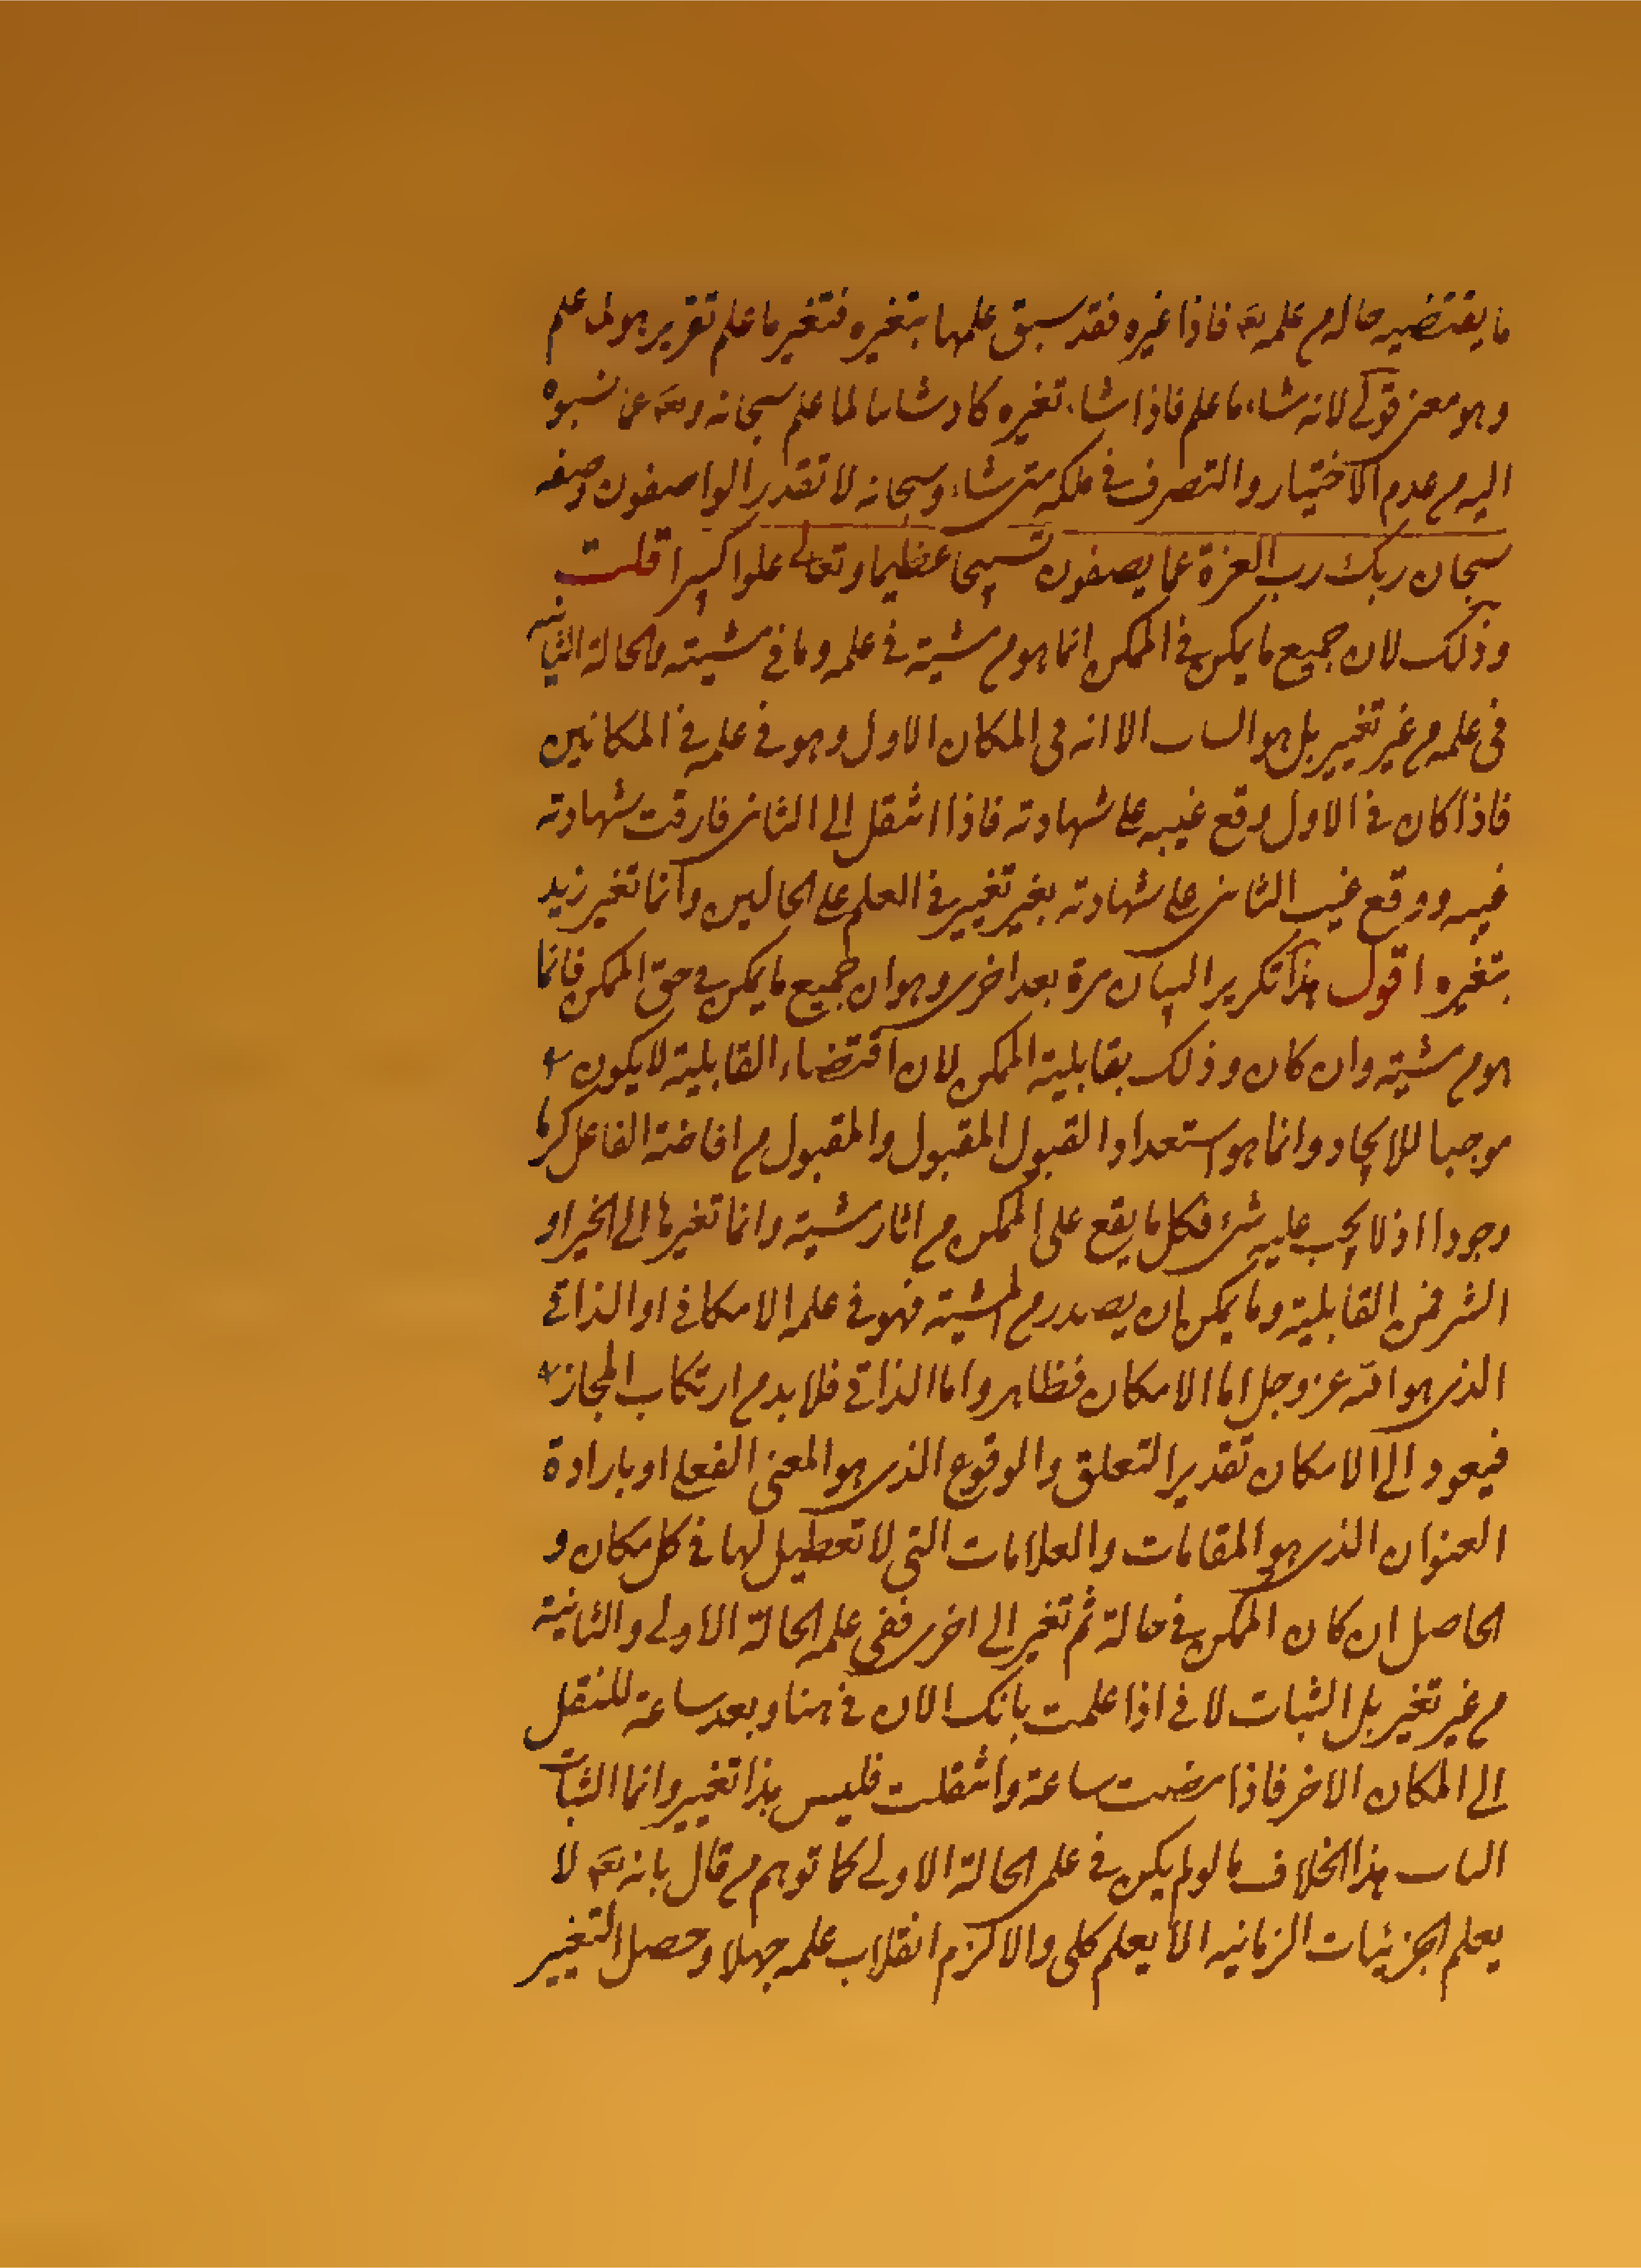 ما يقتضيه حاله م علمه تع فاذا غيره فقد سبق علمها بتغيره فتغير ما علم تقرير هو لما علم
وهو معنى قولي لانه شاء ما علم فاذا شاء تغيره كان شاء لما علم سبحانه وتع عن نسبوه
اليه م عدم الاختيار والتصرف في ملكه متى شاء وسبحانه لا تقدر الواصفون وصفه
سبحان ربك رب العزة عما يصفون تسبيحا عظيما وتعالى علوا كبيرا قلت
وذلك لان جميع ما يمكن في الممكن انما هو م مشيته في علمه وما في مشيته م الحالة الثانية
في علمه م غير تغيير بل هو الا انه في المكان الاول وهو في علمه في المكانين
فاذا كان في الاول وقع غيبه على شهادته فاذا انتقل الى الثاني فارقت شهادته
غيبه ووقع غيب الثاني على شهادته بغير تغيير في العلم على الحالين وانما تغير زيد
بتغيره اقول هذا تكرير البيان مرة بعد اخرى وهو ان جميع ما يمكن في حق الممكن فانما
هو م مشيته وان كان وذلك بقابلية الممكن لان اقتضاء القابلية لا يكون
موجبا للايجاد وانما هو استعداد القبول المقبول والمقبول م افاضة الفاعل كرما
وجودا اذ لا يجب عليه شئ فكل ما يقع على الممكن م اثار مشيته وانما تغيرها الى الخير او
الشر فمن القابلية وما يمكن ان يصدر م المشية فهو في علمه الامكاني او الذاتي
الذي هو الله عز وجل اما الامكان فظاهر واما الذاتي فلا بد م ارتكاب المجاز
فيعود الى الامكان تقدير التعلق والوقوع الذي هو المعنى الفعلي او بارادة
العنوان الذي هو المقامات والعلامات التي لا تعطيل لها في كل مكان و
الحاصل ان كان الممكن في حالة ثم تغير الى اخرى ففي علمه الحالة الاولى والثانية
م غير تغير بل الثبات لا في اذا علمت بانك الان في هنا وبعد ساعة للنقل
الى المكان الاخر فاذا مضت ساعة وانتقلت فليس هذا تغيير وانما الثبات
هذا الخلاف ما لو لم يكن في علمه الحالة الاولى كما توهم م قال بانه تع لا
يعلم الجزئيات الزمانيه الا يعلم كلي والا لزم انقلاب علمه جهلا وحصل التغيير